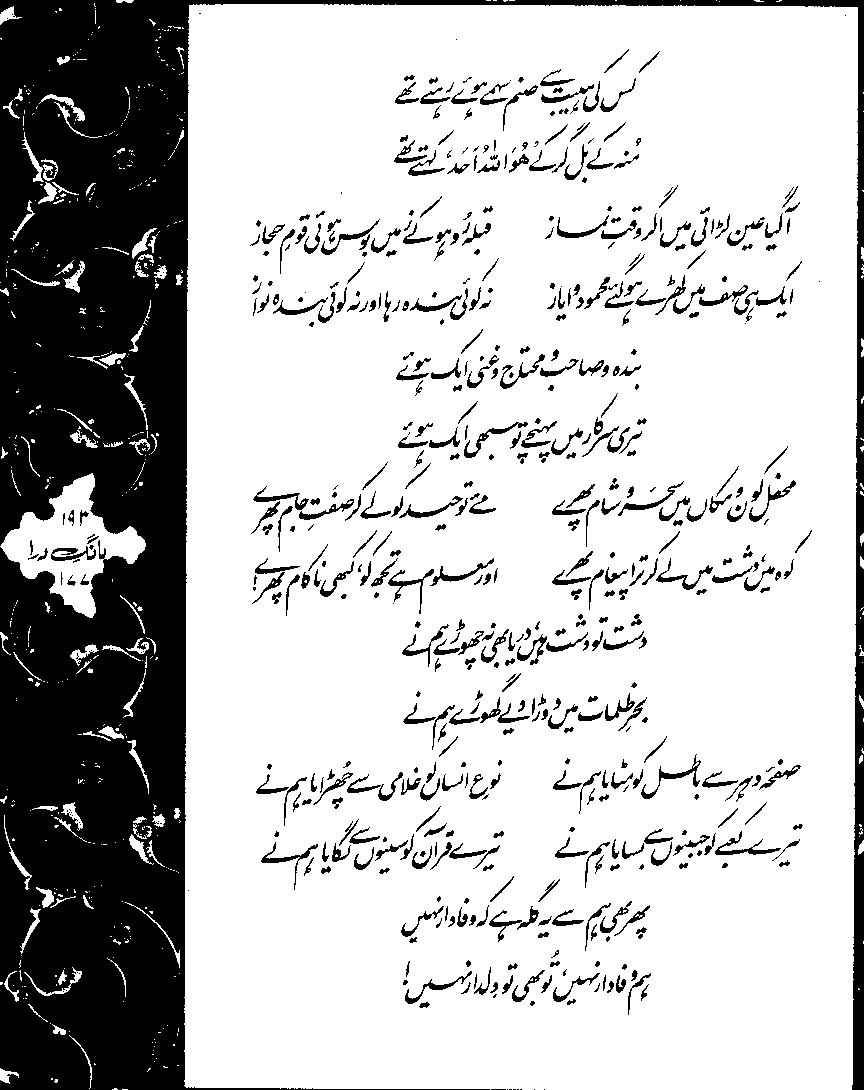 کس کی ہیبت سے صنم سہمے ہوئے رہتے تھے
مُنہ کے بَل گر کے ’ھُوَاللہُ اَحَد‘ کہتے تھے
آ گیا عین لڑائی میں اگر وقتِ نماز قبلہ رُو ہو کے زمیں بوس ہوئی قومِ حجاز
ایک ہی صف میں کھڑے ہو گئے محمود و ایاز نہ کوئی بندہ رہا اور نہ کوئی بندہ نواز
بندہ و صاحب و محتاج و غنی ایک ہوئے
تیری سرکار میں پہنچے تو سبھی ایک ہوئے
محفلِ کون و مکاں میں سحر و شام پھرے مئے توحید کو لے کر صفتِ جام پھرے
کوہ میں، دشت میں لے کر ترا پیغام پھرے اور معلوم ہے تجھ کو، کبھی ناکام پھرے!
دشت تو دشت ہیں، دریا بھی نہ چھوڑے ہم نے
بحرِ ظلمات میں دوڑا دیے گھوڑے ہم نے
صفحۂ دہر سے باطل کو مٹایا ہم نے نوعِ انساں کو غلامی سے چُھڑایا ہم نے
تیرے کعبے کو جبینوں سے بسایا ہم نے تیرے قرآن کو سینوں سے لگایا ہم نے
پھر بھی ہم سے یہ گلہ ہے کہ وفادار نہیں
ہم وفادار نہیں، تُو بھی تو دِلدار نہیں!
۱۹۳
بانگِ درا
۱۷۷